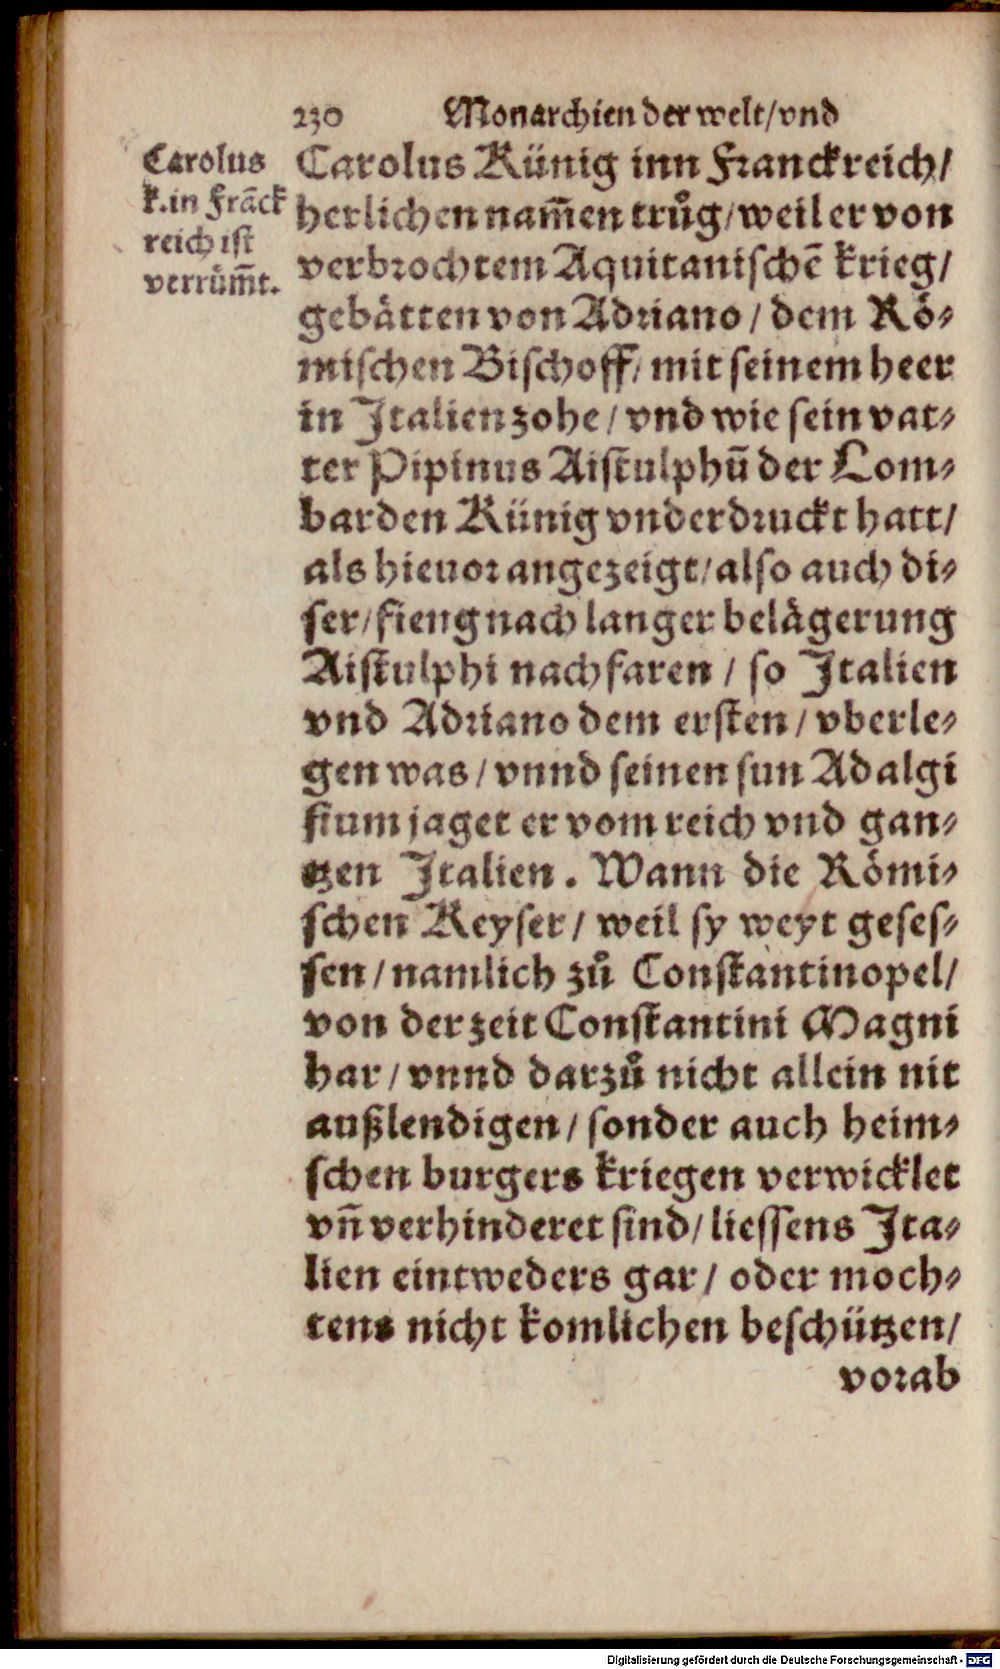 230 Monarchien der welt/vnd
Carolus
k.in Frāck
reich ist
verrům̄t.
Carolus Künig inn Franckreich/
herlichen nam̄en trůg/weil er von
verbrochtem Aquitanischē krieg/
gebätten von Adriano/dem Rö⸗
mischen Bischoff/mit seinem heer
in Italien zohe/vnd wie sein vat⸗
ter Pipinus Aistulphū der Lom⸗
barden Künig vnderdruckt hatt/
als hieuor angezeigt/also auch di⸗
ser/fieng nach langer belägerung
Aistulphi nachfaren/so Italien
vnd Adriano dem ersten/vberle⸗
gen was/vnnd seinen sun Adalgi
sium jaget er vom reich vnd gan⸗
tzen Italien. Wann die Römi⸗
schen Keyser/weil sy weyt geses⸗
sen/namlich zů Constantinopel/
von der zeit Constantini Magni
har/vnnd darzů nicht allein nit
außlendigen/sonder auch heim⸗
schen burgers kriegen verwicklet
vn̄ verhinderet sind/liessens Ita⸗
lien eintweders gar/oder moch⸗
tens nicht komlichen beschützen/
vorab
Digitalisierung gefördert durch die Deutsche Forschungsgemeinschaft - DFG